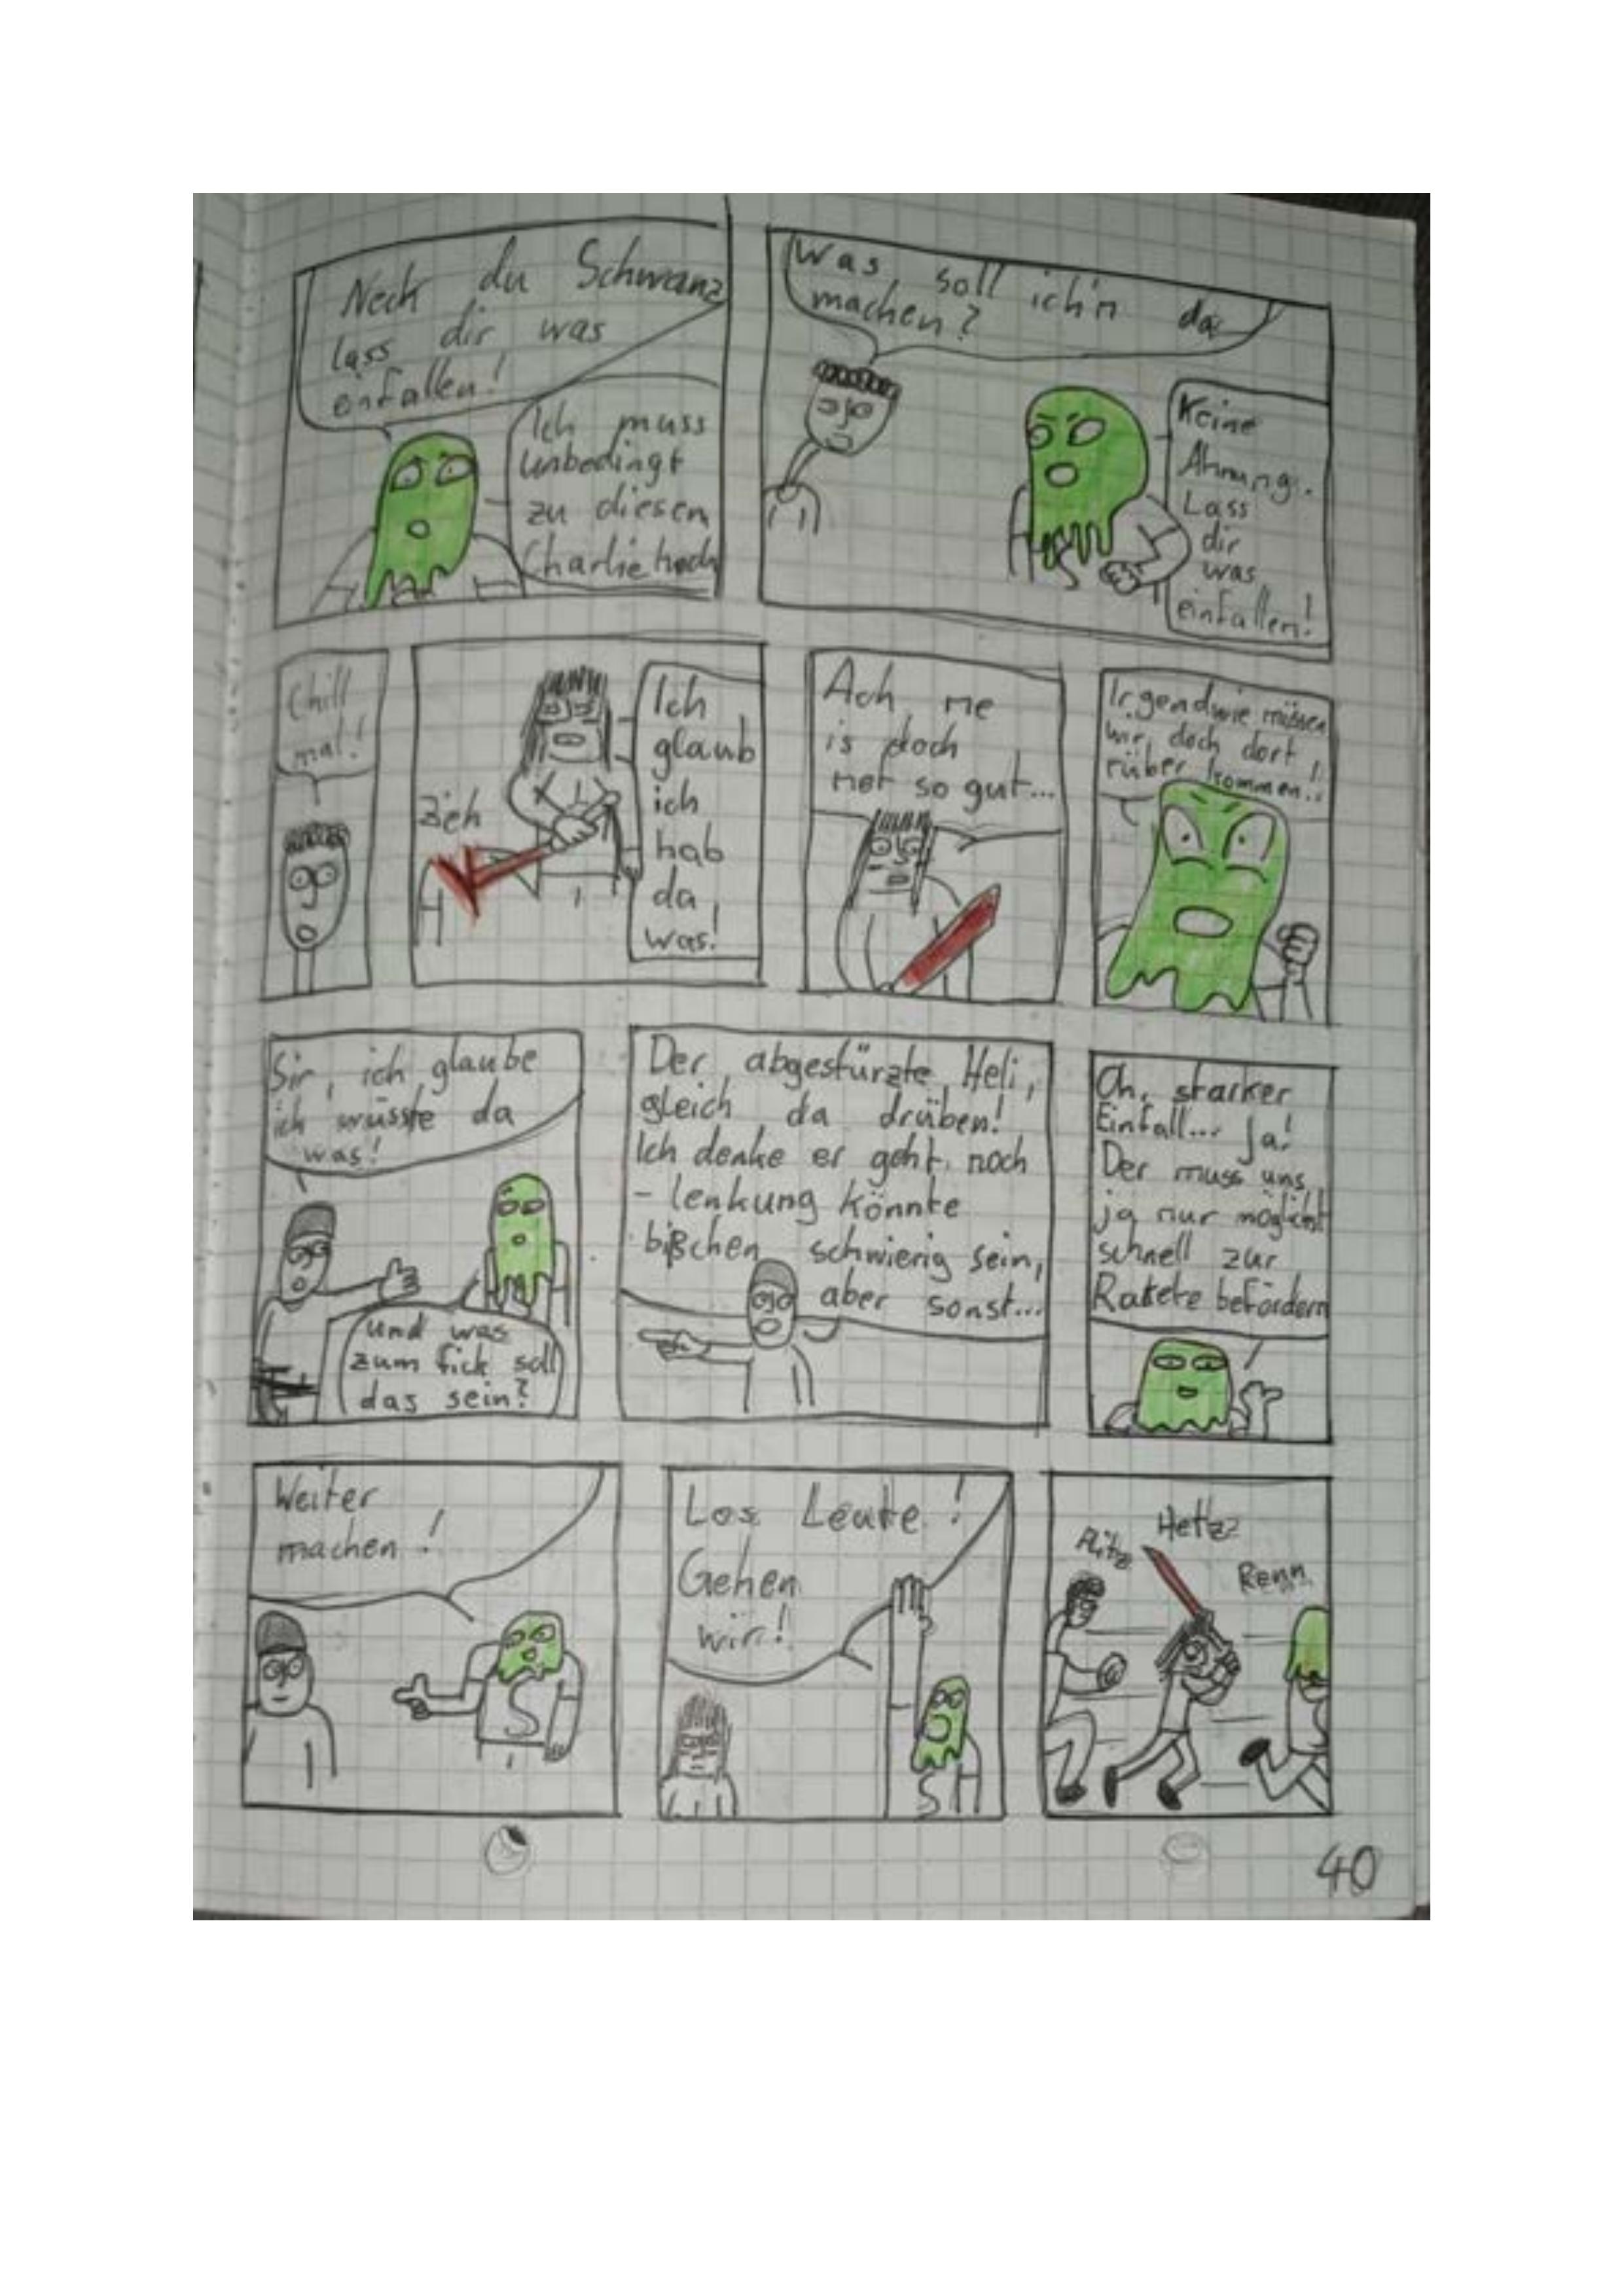 Neck du Schwanz
lass dir was
einfallen!
Ich muss
unbedingt
zu diesem
Charlie hoch
Was soll ich'n da
machen?
Keine
Ahnung.
Lass
dir
was
einfallen!
Chill
mal!
zieh
Ich
glaub
ich
hab
da
was!
Ach ne
is doch
net so gut...
Irgendwie müssen
wir doch dort
rüber kommen!
Sir, ich glaube
ich wüsste da
was!
und was
zum fick soll
das sein?
Der abgestürzte Heli,
gleich da drüben!
Ich denke er geht noch
- lenkung könnte
bißchen schwierig sein,
aber sonst...
Oh, starker
Einfall... Ja!
Der muss uns
ja nur möglichst
schnell zur
Rakete befördern
Weiter
machen!
S
Los Leute!
Gehen
wir!
S
Flitz
Hetzz
Renn
40